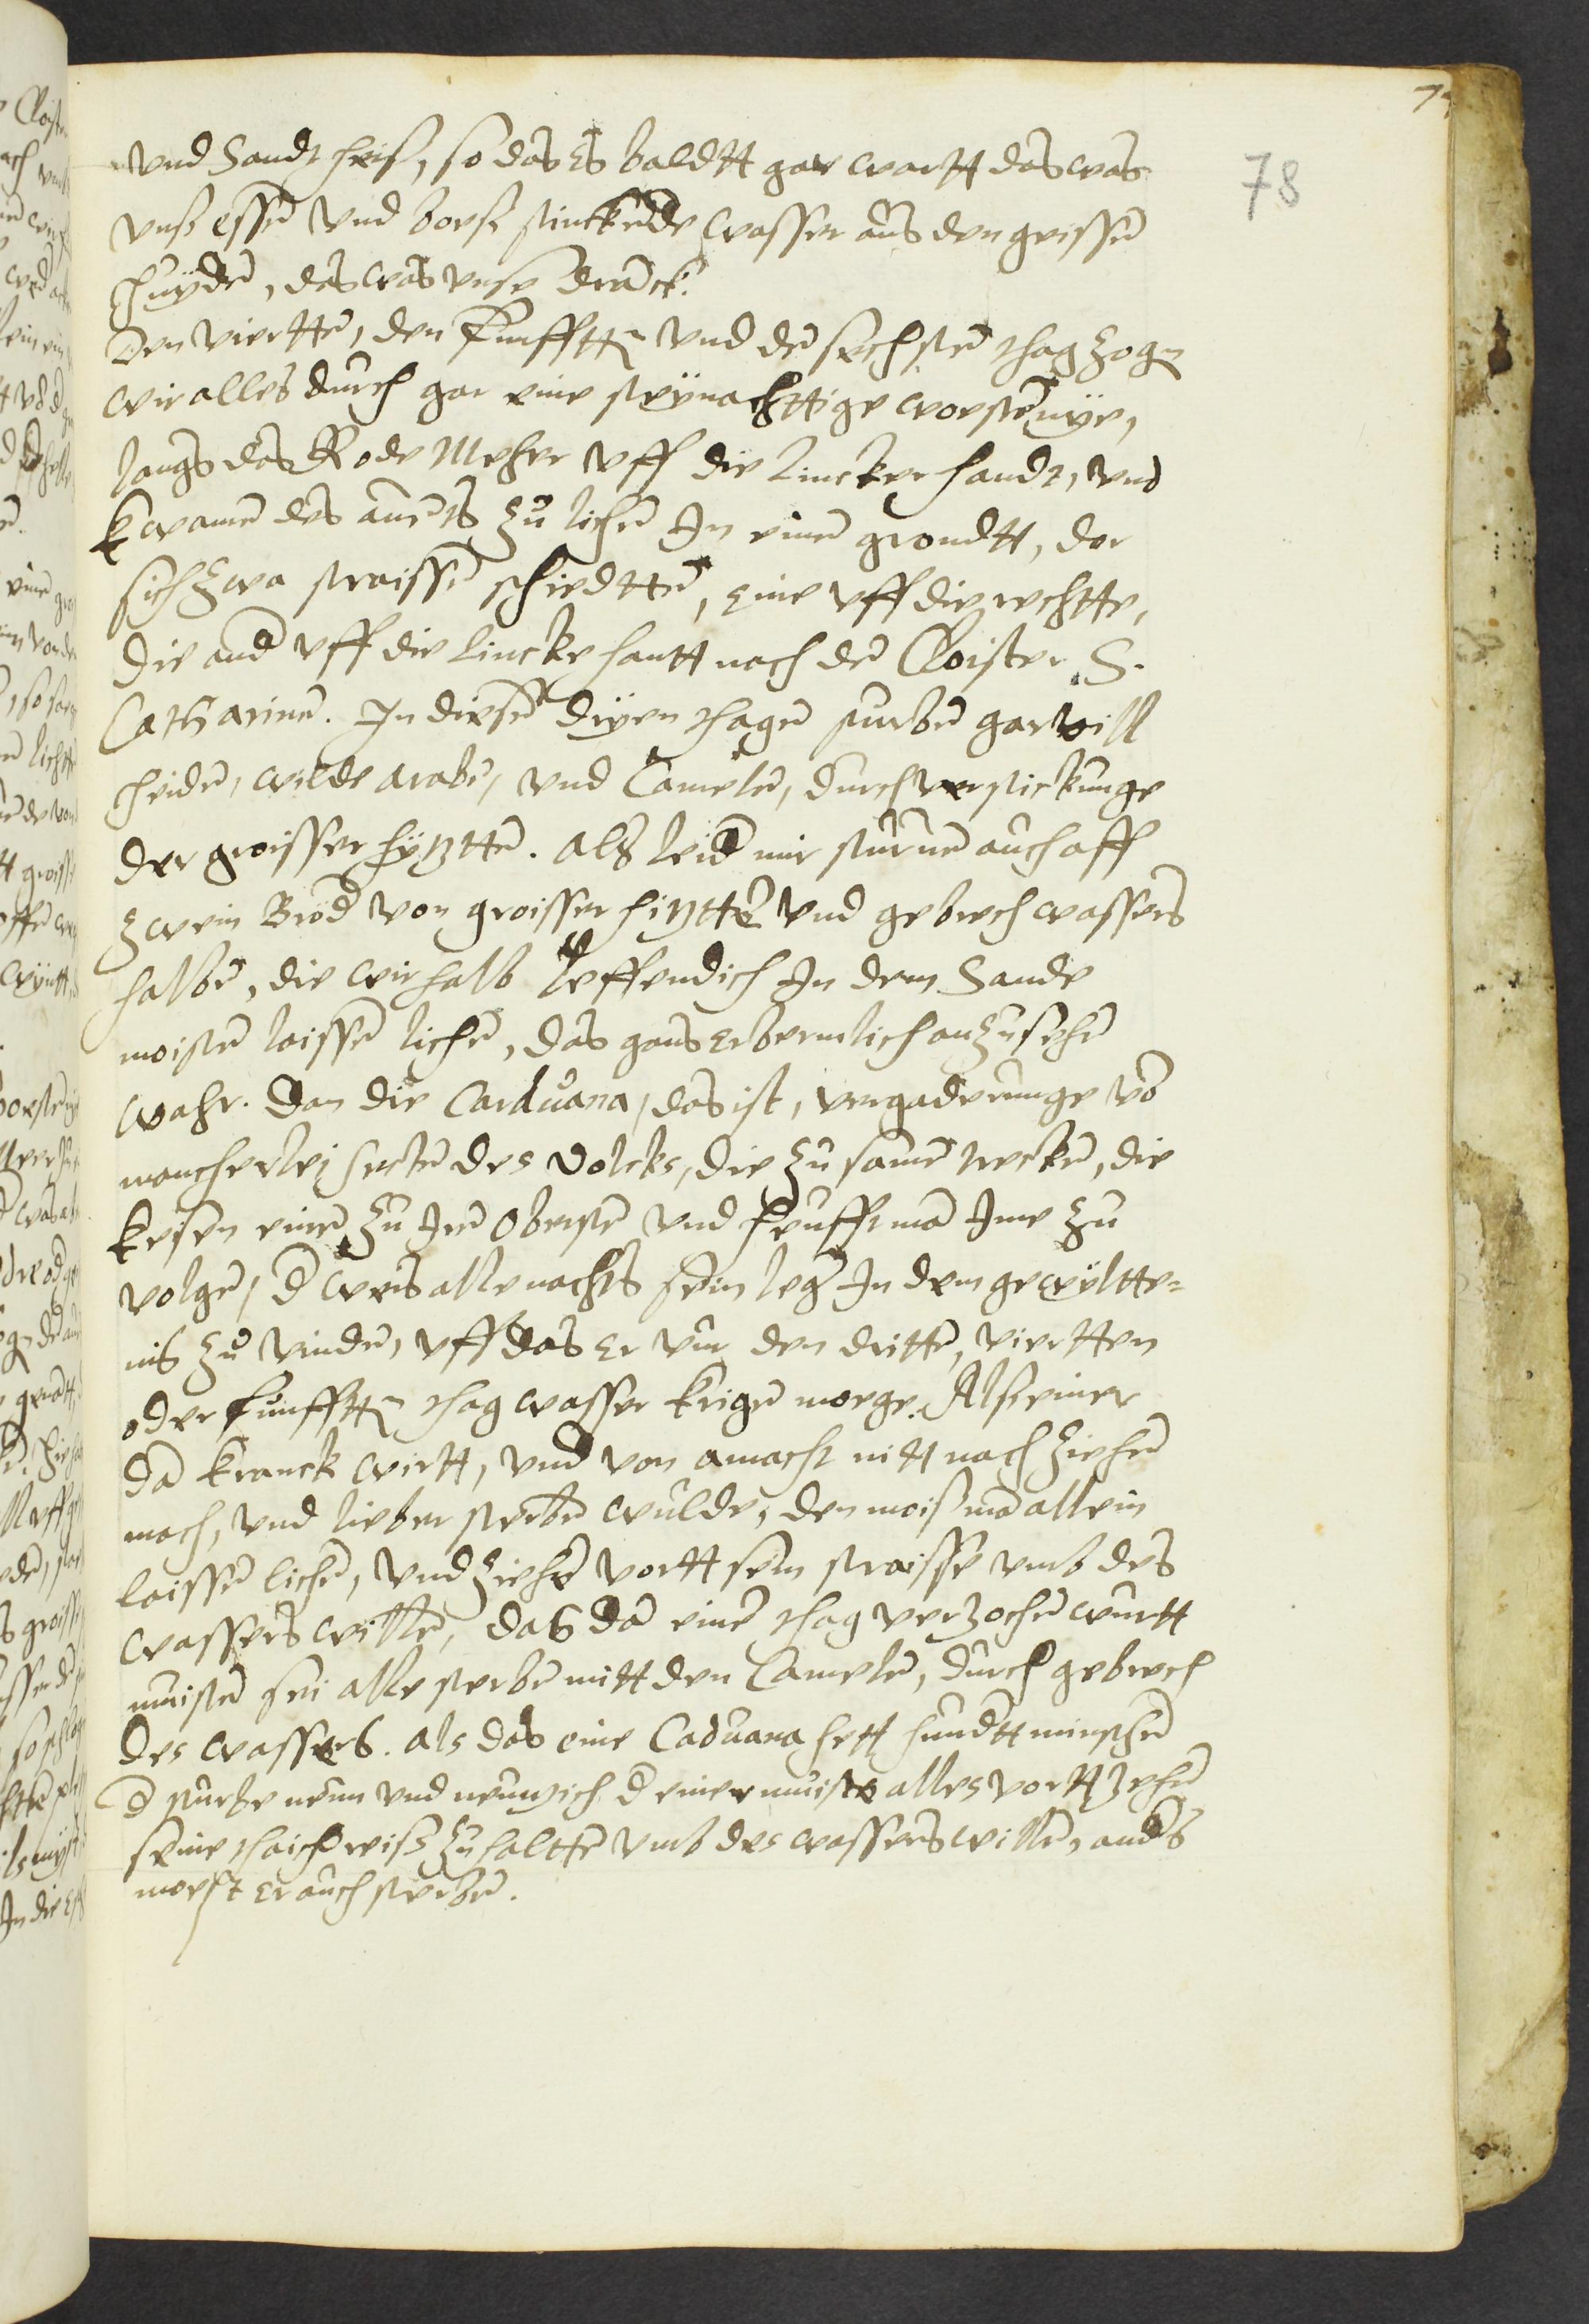 78
vnd Sandt heiß, so das Es baldtt gar wartt das was
vnß essen vnd boeß stinckende wasser aus den geissen
huyden, das was vnse dranck.
Den viertten, den funfftten vnd den sechsten thag zogen
wir alles durch gar eine steynachttige woestenye,
langs das Rode Meher vff die lincker handt, vnd
kwamen des auents zu lichen In einen grondtt, dar
sich zwa straissen schiedtten, eine vff die rechtte,
die ander vff die lincke hantt nach dem Cloister S.
Catharinen. In diesen dryen thagen sturben gar vill
heiden, wilde araben, vnd Camelen, durch verstickunge
der groisser hytztten. Als leider mir sturuen auch aff
zwein Broder von groisser hitztten vnd gebrech wassers
halben, die wir halb leffendich In dem Sande
moisten laissen lichen, das gans Erbermlich anzusehen
wahr. Dan die Carduana, das ist, vergaderunge von
mancherleij secten des Volcks, die zu samen trecken, die
kesen einen zu Iren Obersten vnd heufftman Ime zu
volgen, der weis alle nachts sein leger In dem gewyltte-
nis zu vinden, vff das Er vm den dritten, viertten
oder funfftten thag wasser krigen moege. Als einer
dan kranck wirtt, vnd von amacht nitt nach ziehen
mach, vnd lieber sterben wulde, den mois man allein
laissen lichen, vnd ziehen vortt sein straisse vmb des
wassers willen, das dan einen thag verzochen wurtt
muisten sei alle sterben mitt den Camelen, durch gebrech
des wassers. Als das eine Caduana hett hundertt minschen
der sturbe neun vnd neuntzich der einer muiste alles vortt zehen
seine thaich reiß zu haltten vmb des wassers willen, anders
moest er auch sterben.